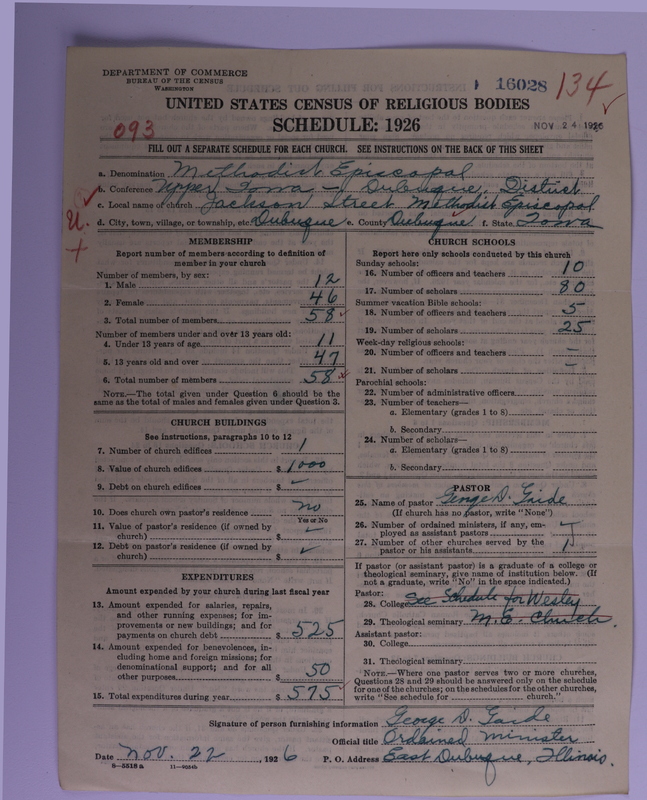 DEPARTMENT OF COMMERCE
BUREAU OF THE CENSUS
WASHINGTON
16028
134
UNITED STATES CENSUS OF RELIGIOUS BODIES
SCHEDULE: 1926
093
NOV 24 1926
FILL OUT A SEPARATE SCHEDULE FOR EACH CHURCH. SEE INSTRUCTIONS ON THE BACK OF THIS SHEET
a. Denomination Methodist Episcopal
b. Conference Upper Iowa – Dubuque, District
c. Local name of church Jackson Street Methodist Episcopal
d. City, town, village, or township, etc. Dubuque e. County Dubuque f. State Iowa
MEMBERSHIP
Report number of members according to definition of member in your church
Number of members, by sex:
1. Male 12
2. Female 46
3. Total number of members 58
Number of members under and over 13 years old:
4. Under 13 years of age 11
5. 13 years old and over 47
6. Total number of members 58
NOTE.—The total given under Question 6 should be the same as the total of males and females given under Question 3.
CHURCH BUILDINGS
See instructions, paragraphs 10 to 12
7. Number of church edifices 1
8. Value of church edifices $ 1000
9. Debt on church edifices $ –
10. Does church own pastor's residence? no
Yes or No
11. Value of pastor's residence (if owned by church) $
12. Debt on pastor's residence (if owned by church) $
EXPENDITURES
Amount expended by your church during last fiscal year
13. Amount expended for salaries, repairs, and other running expenses; for improvements or new buildings; and for payments on church debt $ 525
14. Amount expended for benevolences, including home and foreign missions; for denominational support; and for all other purposes $ 50
15. Total expenditures during year $ 575
CHURCH SCHOOLS
Report here only schools conducted by this church
Sunday schools:
16. Number of officers and teachers 10
17. Number of scholars 80
Summer vacation Bible schools:
18. Number of officers and teachers 5
19. Number of scholars 25
Week-day religious schools:
20. Number of officers and teachers –
21. Number of scholars –
Parochial schools:
22. Number of administrative officers
23. Number of teachers—
a. Elementary (grades 1 to 8)
b. Secondary
24. Number of scholars—
a. Elementary (grades 1 to 8)
b. Secondary
PASTOR
25. Name of pastor George D. Gaide
(If church has no pastor, write "None")
26. Number of ordained ministers, if any, employed as assistant pastors
27. Number of other churches served by the pastor or his assistants 1
If pastor (or assistant pastor) is a graduate of a college or theological seminary, give name of institution below. (If not a graduate, write "No" in the space indicated.)
Pastor:
28. College See Schedule for Wesley
29. Theological seminary M. E. Church.
Assistant pastor:
30. College
31. Theological seminary
NOTE.—Where one pastor serves two or more churches, Questions 28 and 29 should be answered only on the schedule for one of the churches; on the schedules for the other churches, write "See schedule for ........ church."
Signature of person furnishing information George D. Gaide
Official title Ordained Minister
Date Nov. 22, 1926 P. O. Address East Dubuque, Illinois.
8—5518a 11—9024b